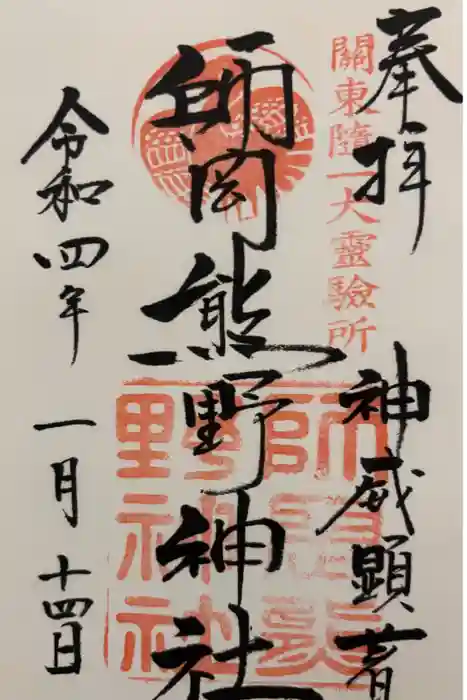 奉拝
關東隨一大靈驗所
神威顕著
師岡熊野神社
師岡熊
野神社
令和四年 一月 十四日